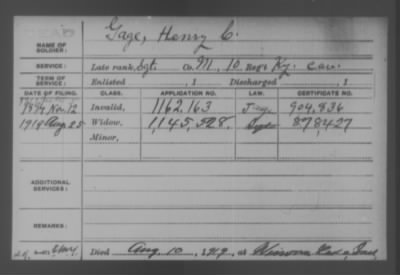 DEAD
NAME OF SOLDIER: Gaze, Henry C.
SERVICE: Late rank, Sgt. Co. M, 10 Reg't Ky. Cav.
TERM OF SERVICE: Enlisted , 1 Discharged , 1
DATE OF FILING. CLASS. APPLICATION NO. LAW. CERTIFICATE NO.
1894 Nov. 12 Invalid, 1162,163 904,836
1919 Aug 25 Widow, 1,145,528. 878,427
Minor,
ADDITIONAL SERVICES:
REMARKS:
Died Aug. 10, 1919, at Winona